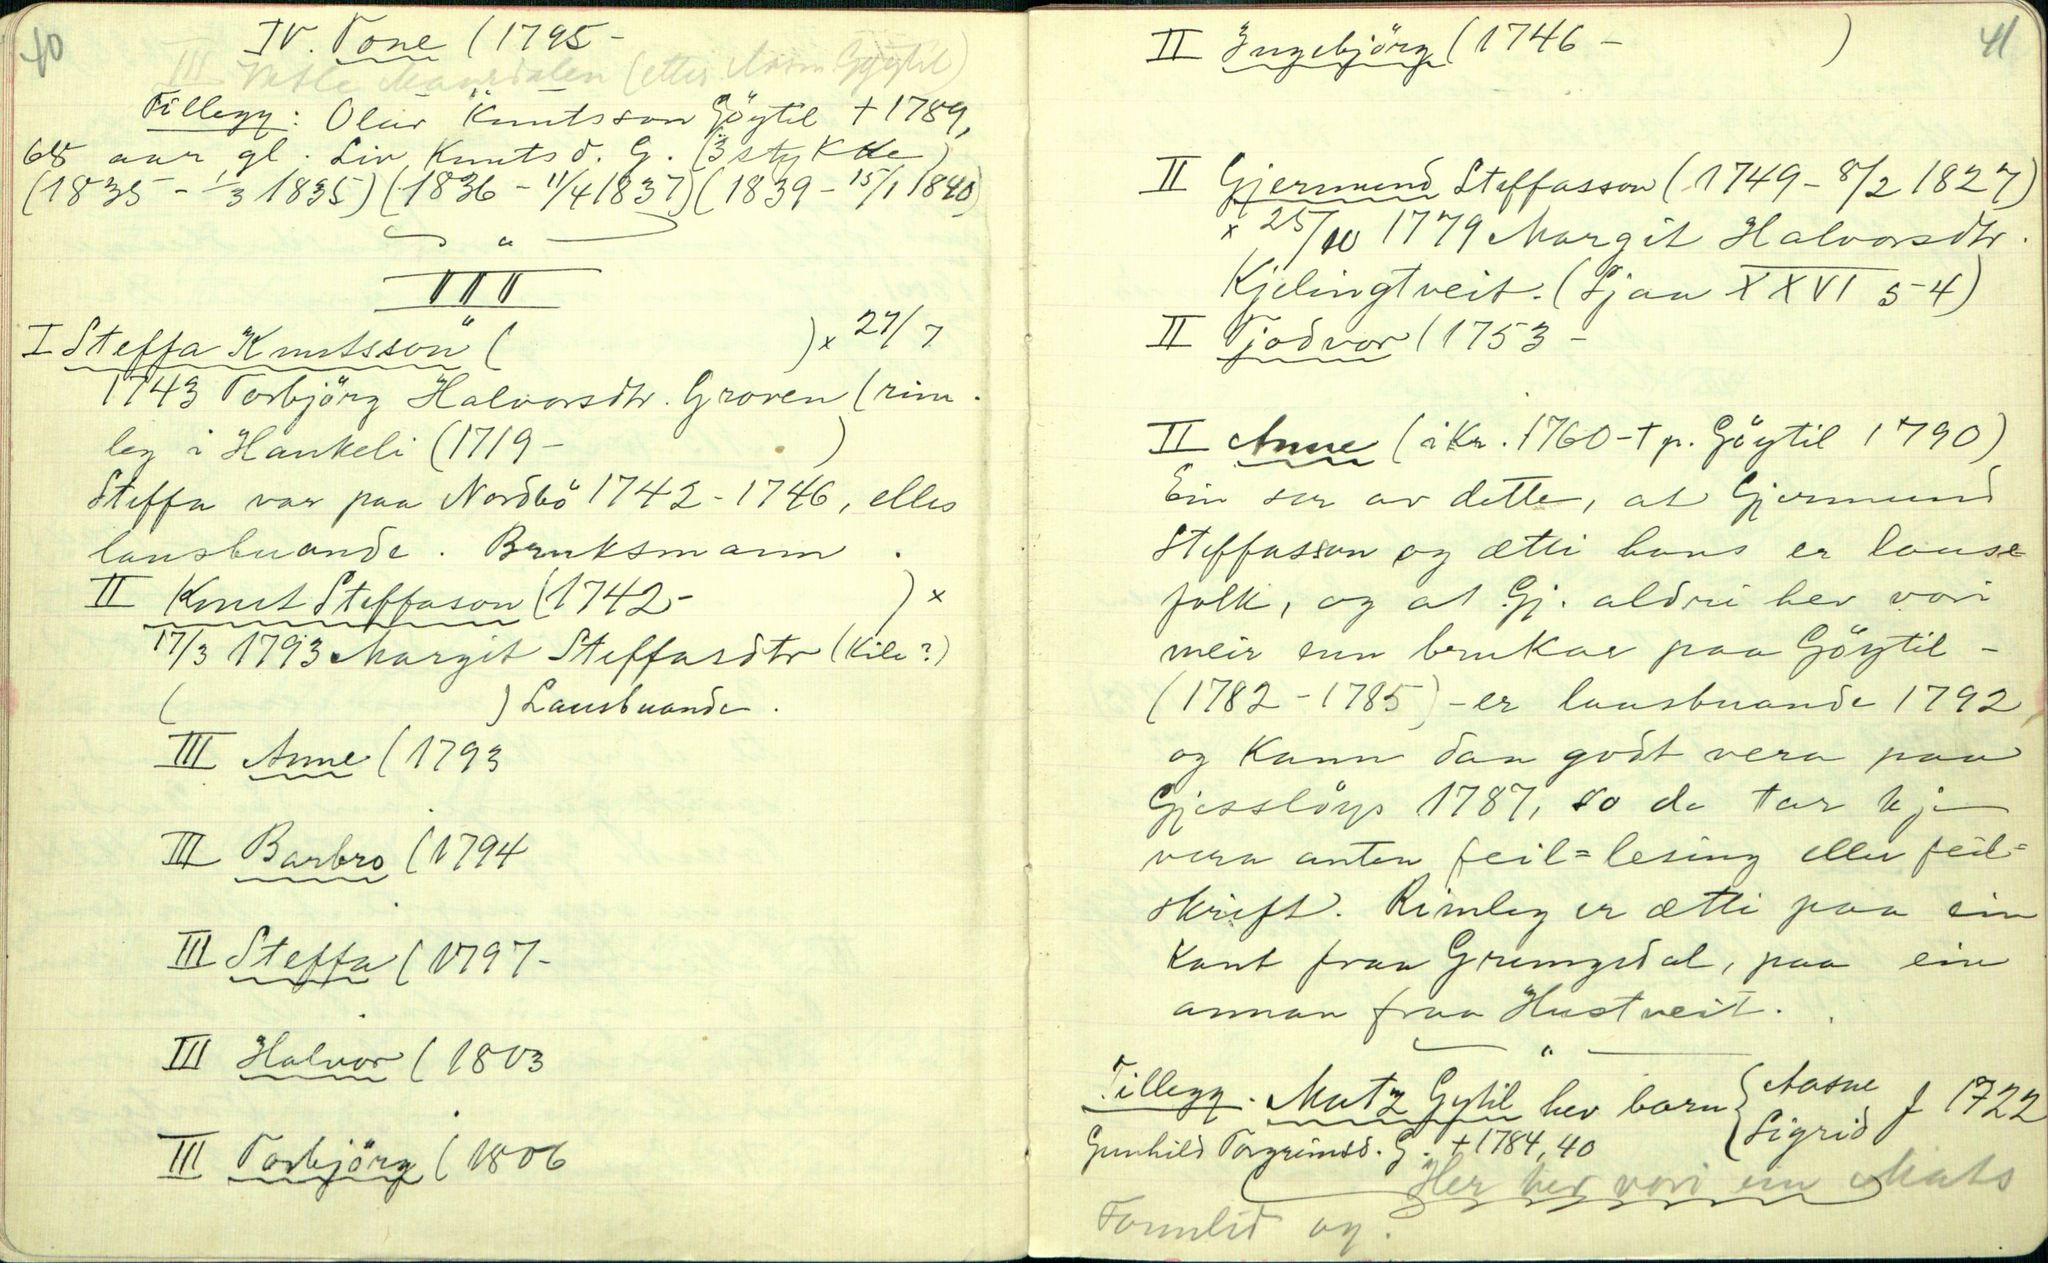 40
IV. Tone (1795 -
III Vesle Mandalen (etter Aasm. Göytil)
Tillegg: Olav Knutsson Göytil + 1789,
68 aar gl. Liv Knutsd. G. (3 stykke)
(1835 - 1/3 1835) (1836 - 11/4 1837) (1839 - 15/1 1840)
"
III
I Steffa Knutsson ( ) x 27/7
1743 Torbjörg Halvorsdtr. Groven (rim-
leg i Haukeli (1719 - )
Steffa var paa Nordbö 1742 - 1746, elles
lausbuande. Bruksmann.
II Knut Steffason (1742 - ) x
17/3 1793 Margit Steffasdtr (Kile?)
( ) Lausbuande.
III Anne (1793
III Barbro (1794
III Steffa (1797 -
III Halvor (1803
III Torbjörg (1806
41
II Ingebjörg (1746 - )
II Gjermund Steffasson (1749 - 8/2 1827)
x 25/10 1779 Margit Halvorsdtr.
Kjelingtveit. (Sjaa XXVI 54)
II Tjodvor (1753 -
II Anne (ikr. 1760 - + p. Göytil 1790)
Ein ser av dette, at Gjermund
Steffasson og ætti hans er lause
folk, og at Gj. aldri hev vori
meir enn brukar paa Göytil -
(1782 - 1785) - er lausbuande 1792,
og kann dan godt vera paa
Gjesslöys 1787, so de tar kje
vera anten feil=lesing eller feil=
skrift. Rimleg er ætti paa ein
kant fraa Grimgsdal, paa ein
annan fraa Hustveit.
"
Tillegg. Matz Gytil hev barn { Aasne
Sigrid f 1722
Gunhild Torgrimsd. G. + 1784, 40
Her hev vori ein Mats
Formlid og.